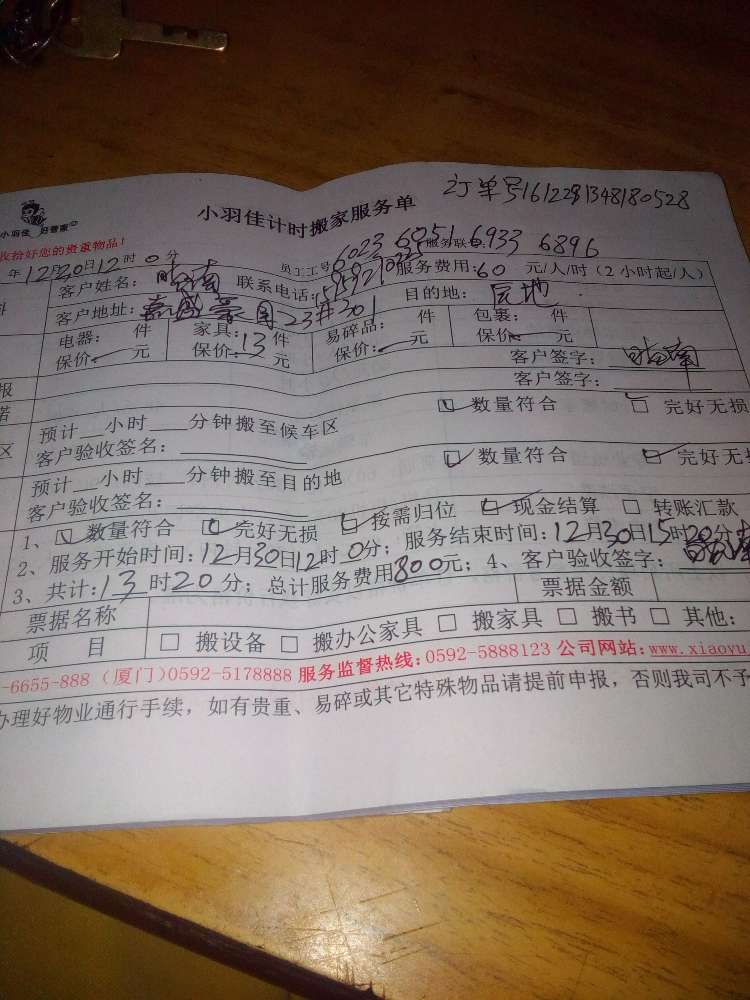 订单号1612291348180528
小羽佳 好管家
小羽佳计时搬家服务单
收拾好您的贵重物品!
员工工号 6023 6051 6933 6896 服务联
年12月30日12时0分
客户姓名: 联系电话: 服务费用:60元/人/时(2小时起/人)
客户地址:嘉盛豪园23#301 目的地:
电器: 件 家具:13件 易碎品: 件 包裹: 件
保价: 元 保价: 元 保价: 元 保价: 元
客户签字:
客户签字:
预计 小时 分钟搬至候车区 数量符合 □ 完好无损
客户验收签名:
预计 小时 分钟搬至目的地 数量符合 完好无损
客户验收签名:
1、 数量符合 完好无损 按需归位 现金结算 □ 转账汇款
2、服务开始时间:12月30日12时0分;服务结束时间:12月30日15时20分
3、共计:13时20分;总计服务费用800元;4、客户验收签字:
票据名称 票据金额
项 目 □ 搬设备 □ 搬办公家具 □ 搬家具 □ 搬书 □ 其他:
-6655-888 (厦门)0592-5178888 服务监督热线:0592-5888123 公司网站:www.xiaoyu
办理好物业通行手续,如有贵重、易碎或其它特殊物品请提前申报,否则我司不予